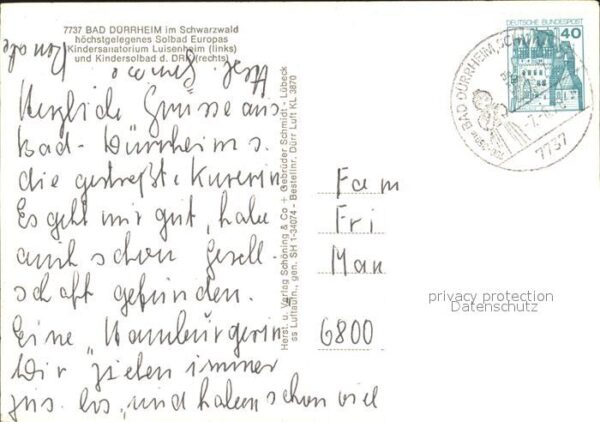 7737 BAD DÜRRHEIM im Schwarzwald
höchstgelegenes Solbad Europas
Kindersanatorium Luisenheim (links)
und Kindersolbad d. DRK (rechts)
Herzliche Grüsse aus
Bad-Dürrheim s.
die gestreßte Kurerin
Es geht mir gut, habe
auch schon Gesell-
schaft gefunden.
Eine „Hamburgerin"
Wir ziehen immer
zus. los, und haben schon viel
Herst. u. Verlag Schöning & Co + Gebrüder Schmidt - Lübeck
ss Luftaufn., gen. SH 1-34074 - Bestellnr. Dürr Luft KL 3870
DEUTSCHE BUNDESPOST
40
BAD DÜRRHEIM, SCHWARZW
7737
Fam
Fri
Man
6800
privacy protection
Datenschutz